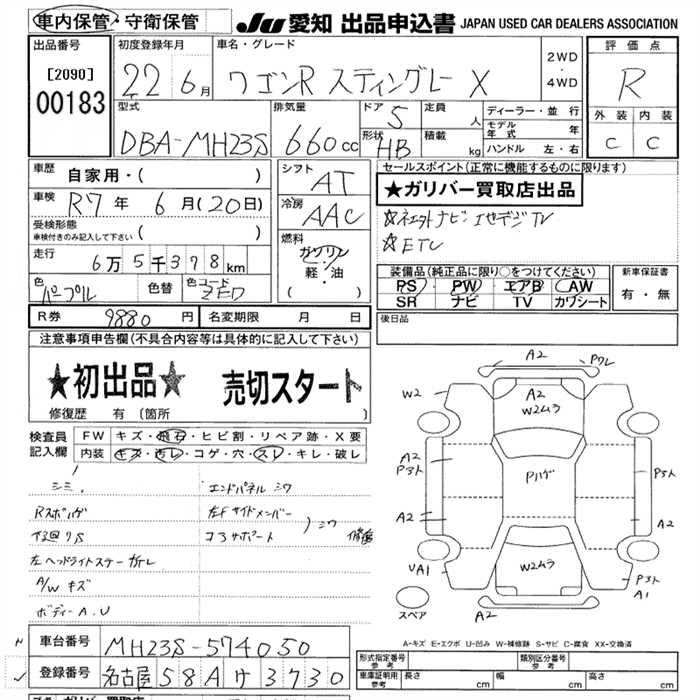 車内保管・守衛保管
JU 愛知 出品申込書 JAPAN USED CAR DEALERS ASSOCIATION
出品番号
[2090]
00183
初度登録年月
22 6月
車名・グレード
ワゴンR スティングレー X
2WD
・
4WD
評価点
R
外装 内装
C C
型式
DBA-MH23S
排気量
660cc
ドア 5
形状 HB
定員 人
積載 kg
ディーラー・並行
モデル年式 年
ハンドル 左・右
車歴 自家用・( )
車検 R7年 6月(20日)
受検形態
車検付きのみ記入して下さい ( )
走行 6万5千378km
色 パープル
色替
色コード ZE7
シフト AT
冷房 AAC
燃料
ガソリン
軽・油
( )
セールスポイント(正常に機能するものに限ります)
★ガリバー買取店出品
☆社外ナビ
☆ETC
装備品(純正品に限り○をつけてください)
PS PW エアB AW
SR ナビ TV カワシート
新車保証書
有・無
R券 9880円
名変期限 月 日
後日品
注意事項申告欄(不具合内容等は具体的に記入して下さい)
★初出品★ 売切スタート
修復歴 有 (箇所 )
検査員記入欄
FW キズ・飛石・ヒビ割・リペア跡・X要
内装 キズ・汚レ・コゲ・穴・スレ・キレ・破レ
シミ
Rスポハゲ
下廻りS
左ヘッドライトステー折レ
A/Wキズ
ボディーA.U
エンドパネルシワ
左Fサイドメンバー
コアサポート
シワ
修復
A2 Pワレ
W2
A2
W2ムラ
A2
Pスト
Pハゲ
Pスト
A2
A2
W2ムラ
UA1
Pスト
A1
A2
スペア
A-キズ E-エクボ U-凹み W-補修跡 S-サビ C-腐食 XX-交換済
車台番号 MH23S-574050
登録番号 名古屋 58A ケ 3730
形式指定番号 参考
類別区分番号 参考
車庫証明用 参考 長さ cm 幅 cm 高さ cm